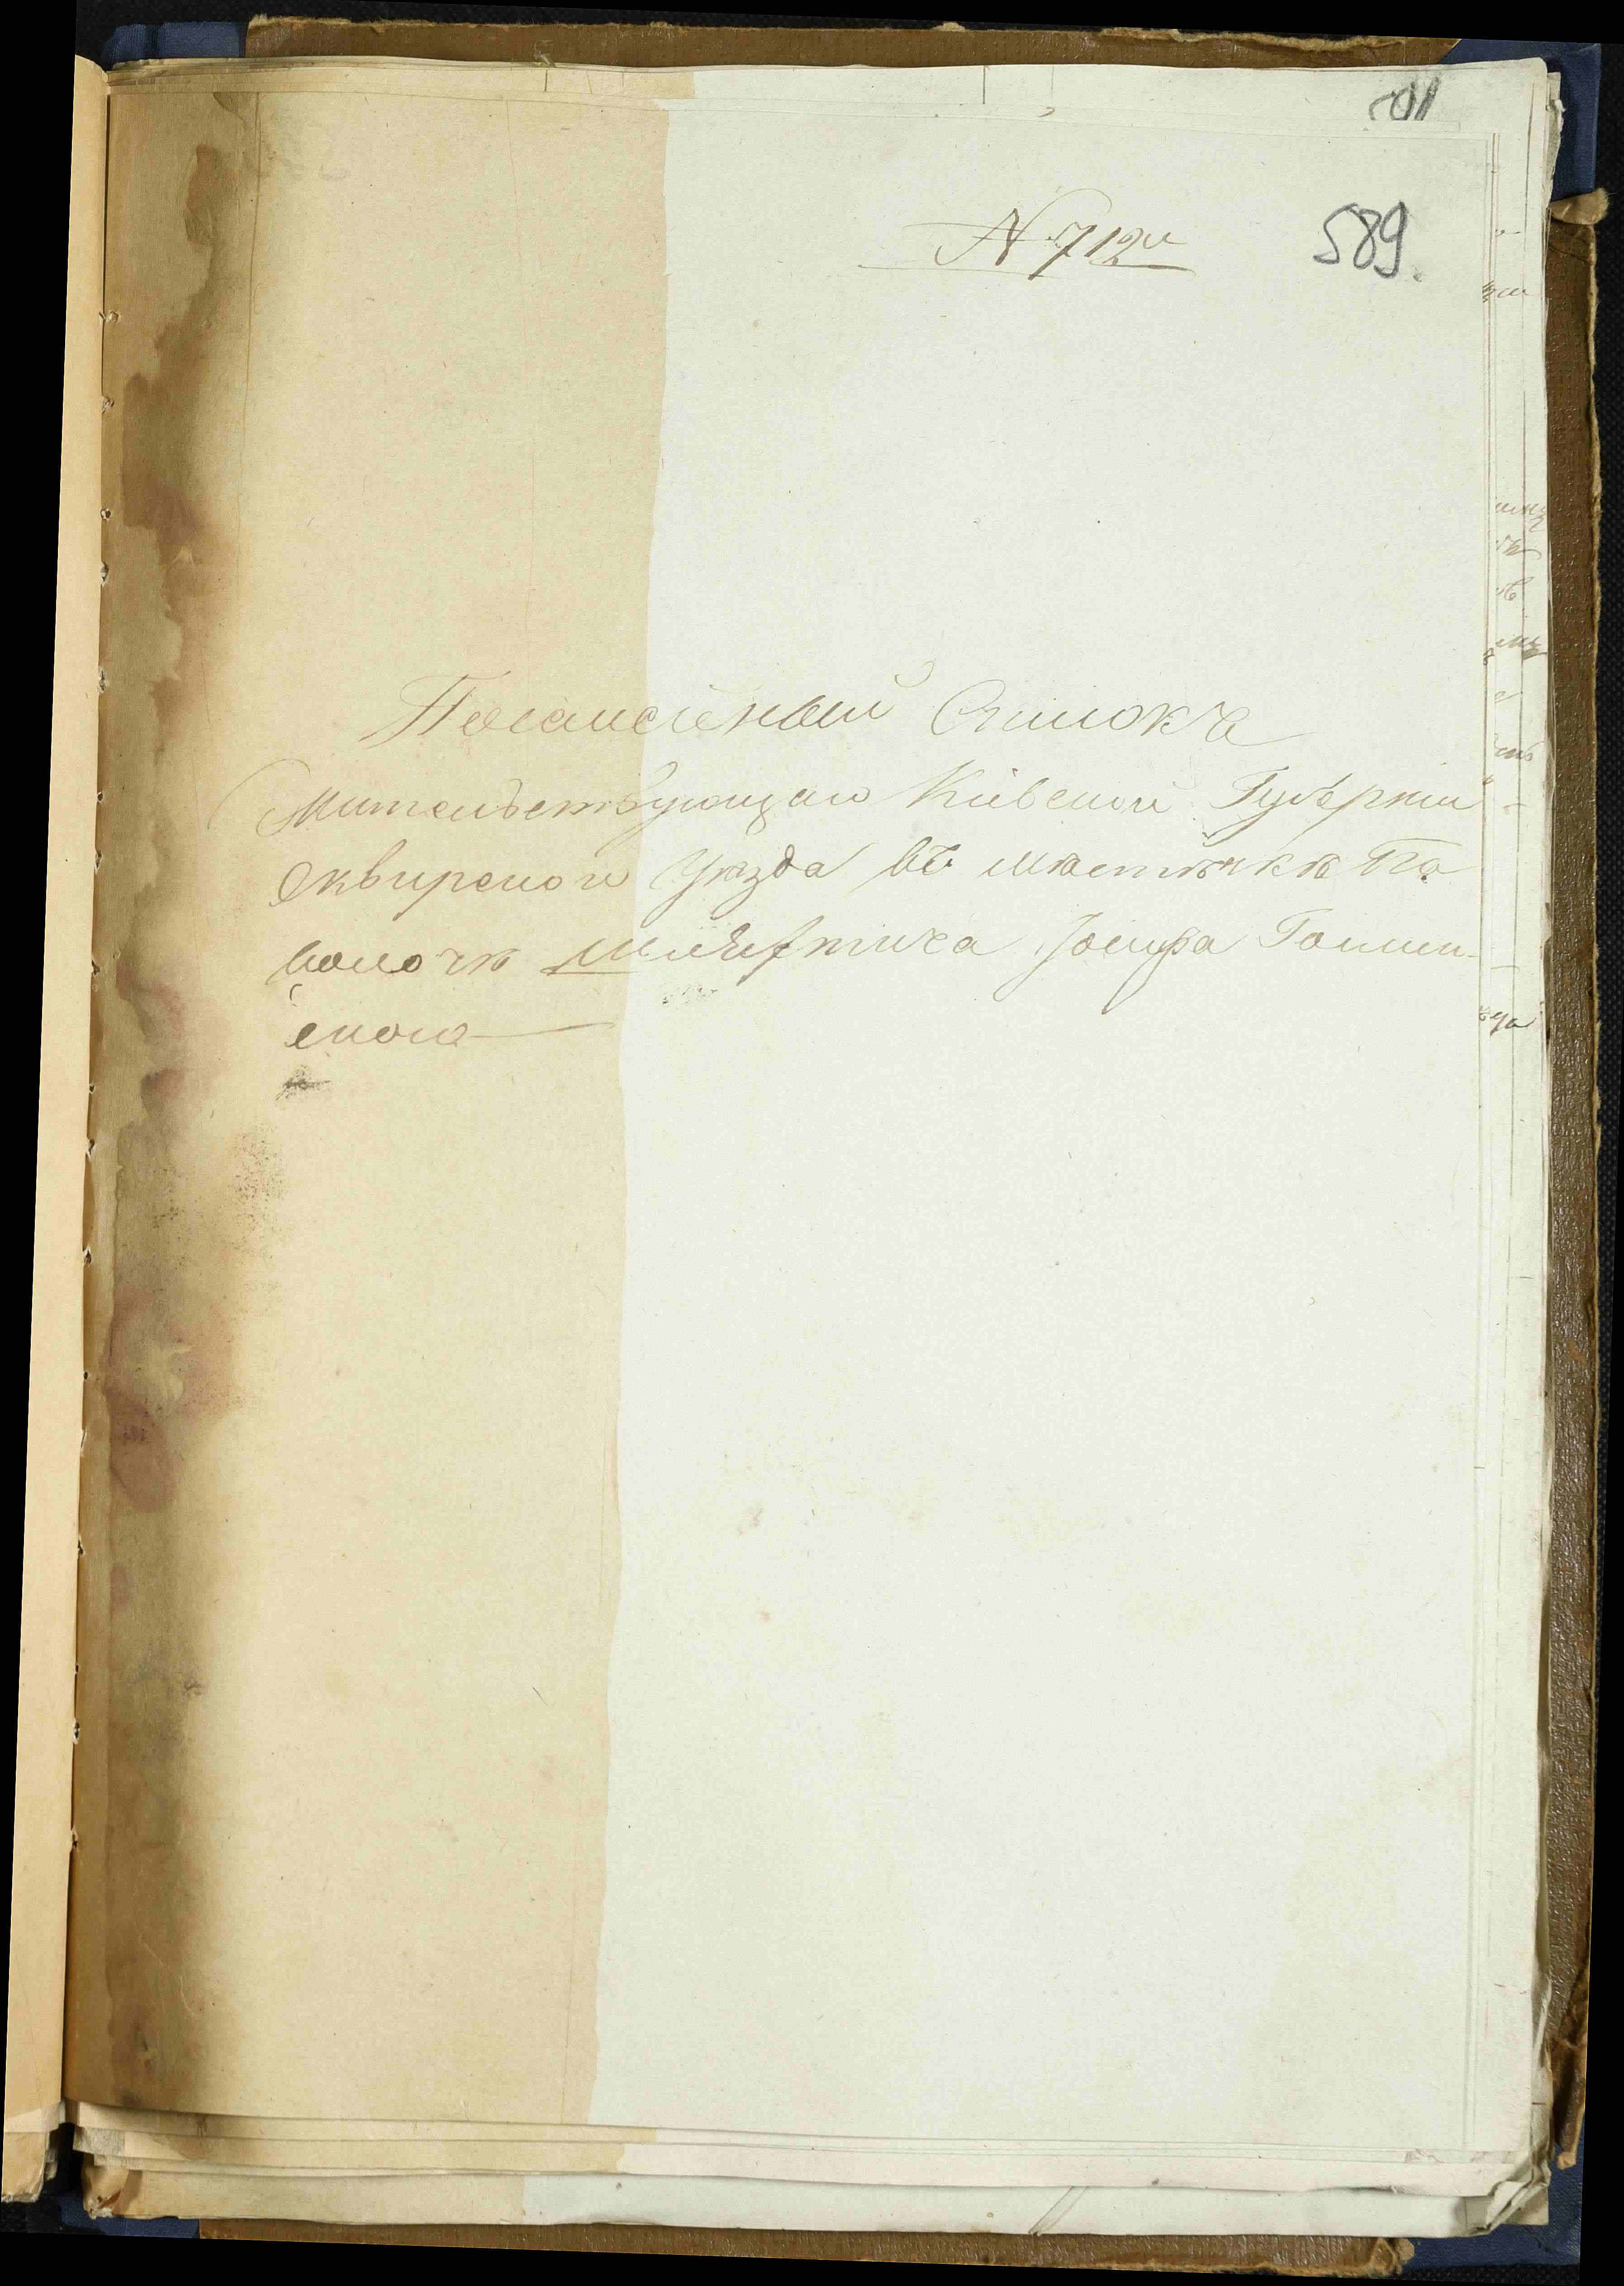 501
N 712й
589.
Посемейный Списокъ
Жительствующаго Кіевской Губерніи
Сквирскаго Уѣзда въ мѣстѣчкѣ Па
волочѣ Шляхтича Іосифа Гошин-
скаго